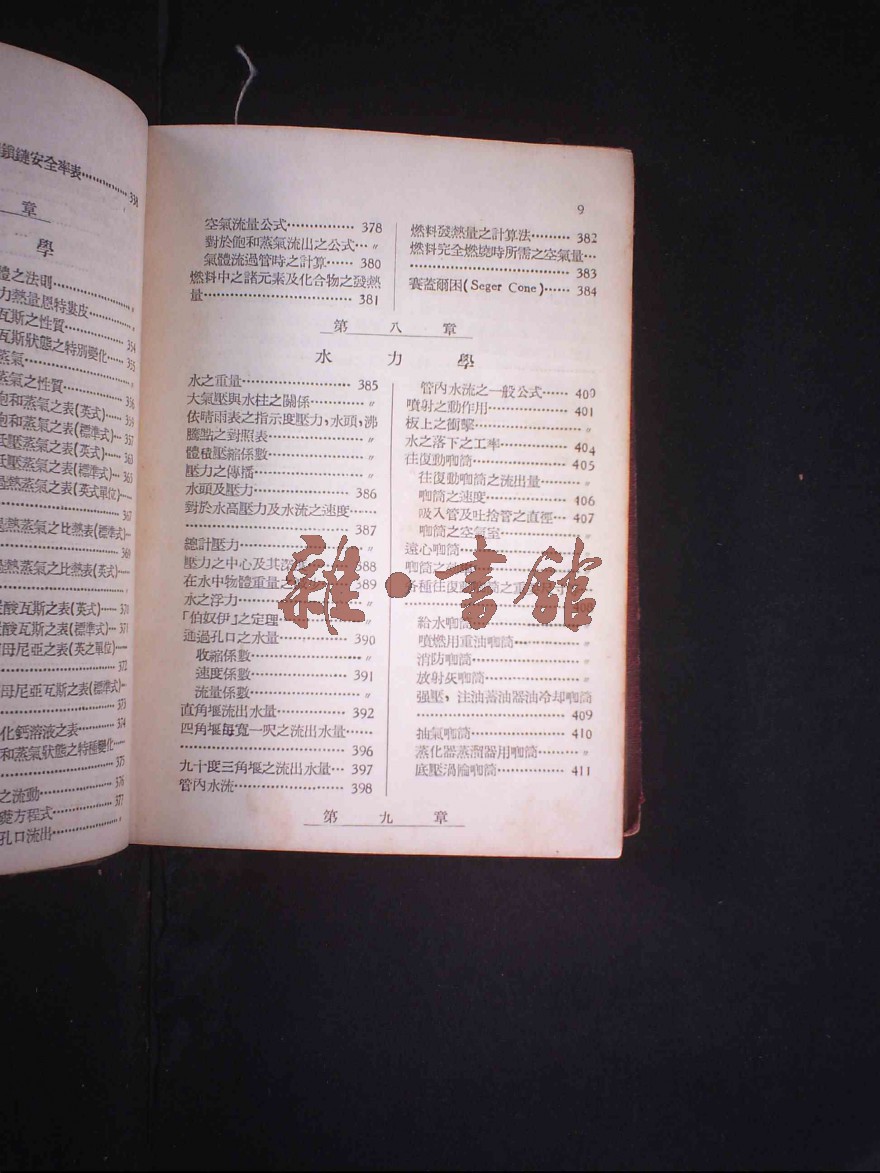 鎖鏈安全率表…………338
章
學
體之法則…………〃
力熱量恩特婁皮…………〃
瓦斯之性質…………354
瓦斯狀態之特別變化……355
蒸氣…………〃
蒸氣之性質…………356
飽和蒸氣之表(英式)……359
飽和蒸氣之表(標準式)…360
低壓蒸氣之表(英式)……363
低壓蒸氣之表(標準式)…365
熱蒸氣之表(英式單位)…
…………367
熱蒸氣之比熱表(標準式)…
…………369
熱蒸氣之比熱表(英式)…
…………〃
酸瓦斯之表(英式)……370
酸瓦斯之表(標準式)…371
母尼亞之表(英之單位)…
…………372
母尼亞瓦斯之表(標準式)…
…………373
化鈣溶液之表…………374
和蒸氣狀態之特種變化…
…………375
之流動…………376
方程式…………377
孔口流出…………〃
9
空氣流量公式…………… 378
對於飽和蒸氣流出之公式…〃
氣體流過管時之計算…… 380
燃料中之諸元素及化合物之發熱
量………………………… 381
燃料發熱量之計算法……… 382
燃料完全燃燒時所需之空氣量…
………………………… 383
賽蓋爾困(Seger Cone)…… 384
第 八 章
水 力 學
水之重量………………… 385
大氣壓與水柱之關係……… 〃
依晴雨表之指示度壓力,水頭,沸
騰點之對照表…………… 〃
體積壓縮係數…………… 〃
壓力之傳播……………… 〃
水頭及壓力……………… 386
對於水高壓力及水流之速度……
………………………… 387
總計壓力………………… 〃
壓力之中心及其深…… 388
在水中物體重量之…… 389
水之浮力………………… 〃
「伯奴伊」之定理………… 〃
通過孔口之水量………… 390
收縮係數……………… 〃
速度係數……………… 391
流量係數……………… 〃
直角堰流出水量………… 392
四角堰每寬一呎之流出水量……
………………………… 396
九十度三角堰之流出水量… 397
管內水流………………… 398
管內水流之一般公式…… 400
噴射之動作用…………… 401
板上之衝擊……………… 〃
水之落下之工率………… 404
往復動喞筒……………… 405
往復動喞筒之流出量…… 〃
喞筒之速度…………… 406
吸入管及吐捨管之直徑… 407
喞筒之空氣室………… 〃
遠心喞筒………………
喞筒之
各種往復動喞筒之重
………………………… 408
給水喞筒……………… 〃
噴燃用重油喞筒……… 〃
消防喞筒……………… 〃
放射灰喞筒…………… 〃
强壓,注油蓄油器油冷却喞筒
………………………… 409
抽氣喞筒……………… 410
蒸化器蒸溜器用喞筒…… 〃
底壓渦輪喞筒………… 411
第 九 章
雜·書館